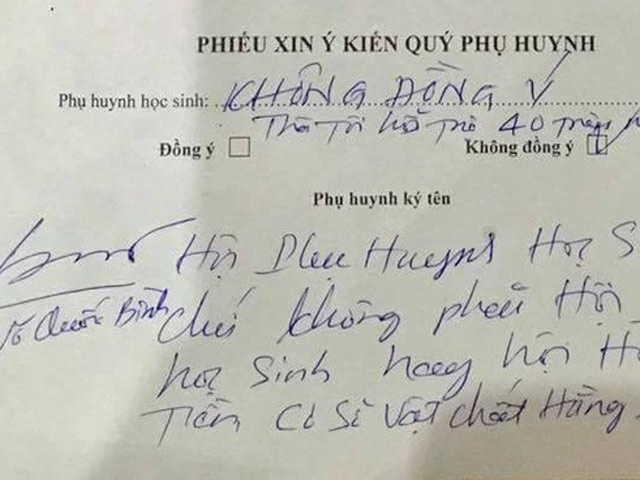 PHIẾU XIN Ý KIẾN QUÝ PHỤ HUYNH
Phụ huynh học sinh: KHÔNG ĐỒNG Ý
Thà Tôi hỗ Trợ 40 Triệu
Đồng ý Không đồng ý
Phụ huynh ký tên
Hội Phụ Huynh Học S
Võ Quốc Bình
chứ không phải Hội
học sinh hay hội H
Tiền Cơ Sở Vật Chất Hàng